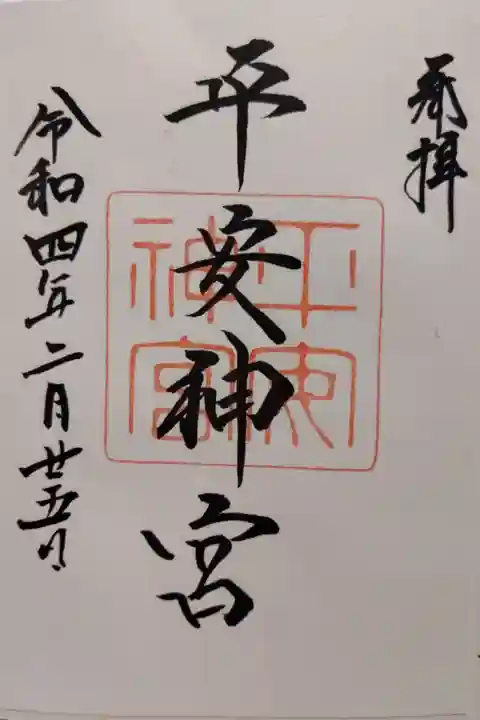 奉拝
平安神宮
平安
神宮
令和四年二月廿五日